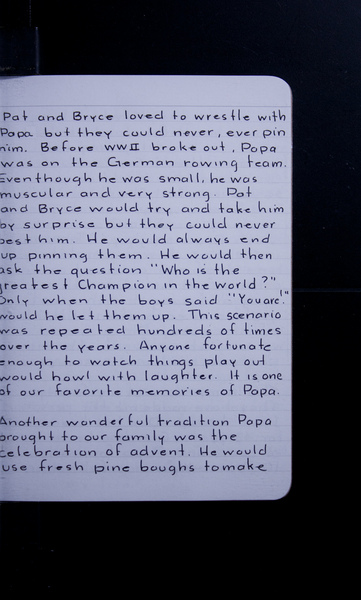 Pat and Bryce loved to wrestle with
Papa but they could never, ever pin
him. Before WWII broke out, Papa
was on the German rowing team.
Even though he was small, he was
muscular and very strong. Pat
and Bryce would try and take him
by surprise but they could never
best him. He would always end
up pinning them. He would then
ask the question "Who is the
greatest Champion in the world?"
Only when the boys said "You are!"
would he let them up. This scenario
was repeated hundreds of times
over the years. Anyone fortunate
enough to watch things play out
would howl with laughter. It is one
of our favorite memories of Papa.
Another wonderful tradition Papa
brought to our family was the
celebration of advent. He would
use fresh pine boughs to make